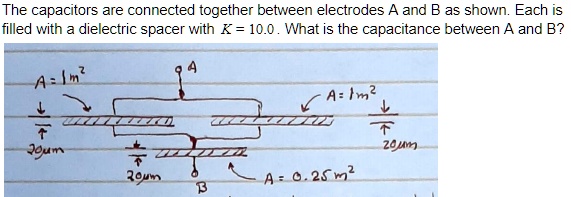 The capacitors are connected together between electrodes A and B as shown. Each is
filled with a dielectric spacer with K = 10.0. What is the capacitance between A and B?
A
A = 1m²
A = 1m²
20µm
20µm
20µm
A = 0.25 m²
B